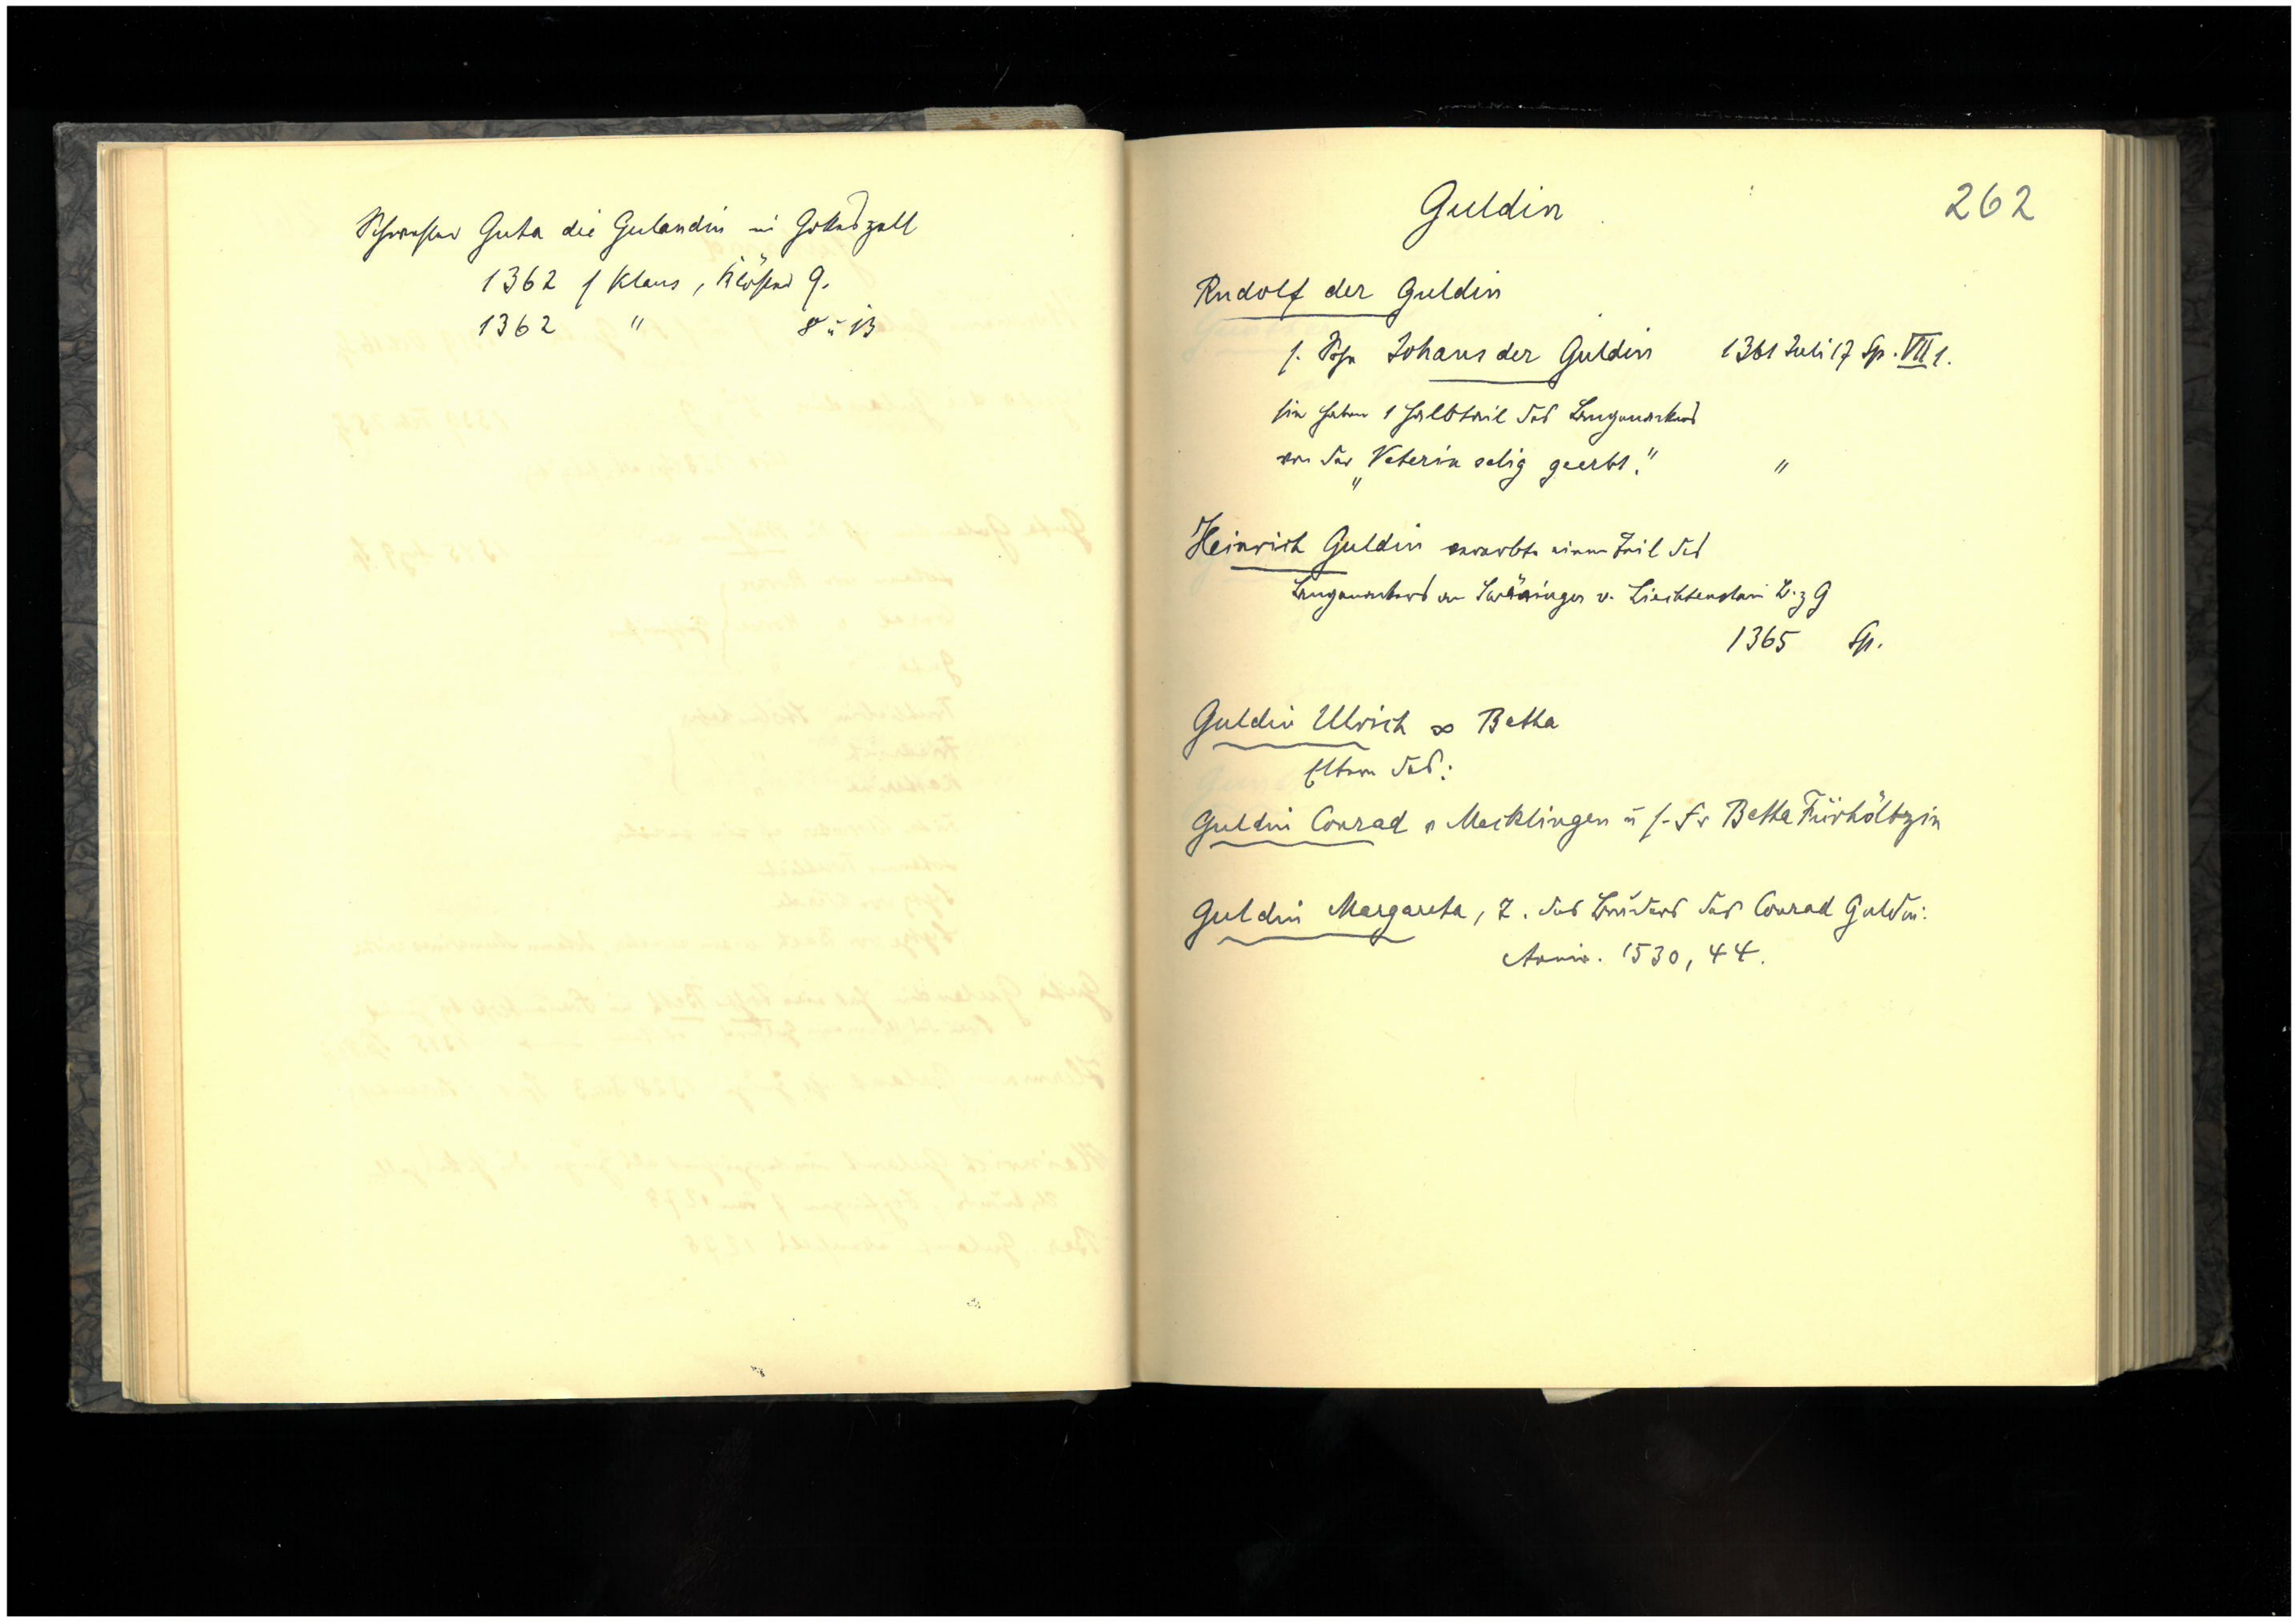 Schwester Guta die Gulandin in Gotteszell
1362 s Klaus, Klöster 9.
1362 " 8 u 13
Guldin 262
Rudolf der Guldin
s. Sohn Johans der Guldin 1361 Juli 17 Sp. VII 1.
sie haben 1 Halbteil des Langenackers
von der „Veterin selig geerbt." "
Heinrich Guldin erwarb einen Teil des
v. Liechtenstein B. z G
1365 Sp.
Guldin Ulrich ∞ Betha
Eltern des:
Guldin Conrad v Mecklingen u s. Fr Betha Fürhöltzin
Guldin Margareta, T. des Bruders des Conrad Guldin:
Anniv. 1530, 44.